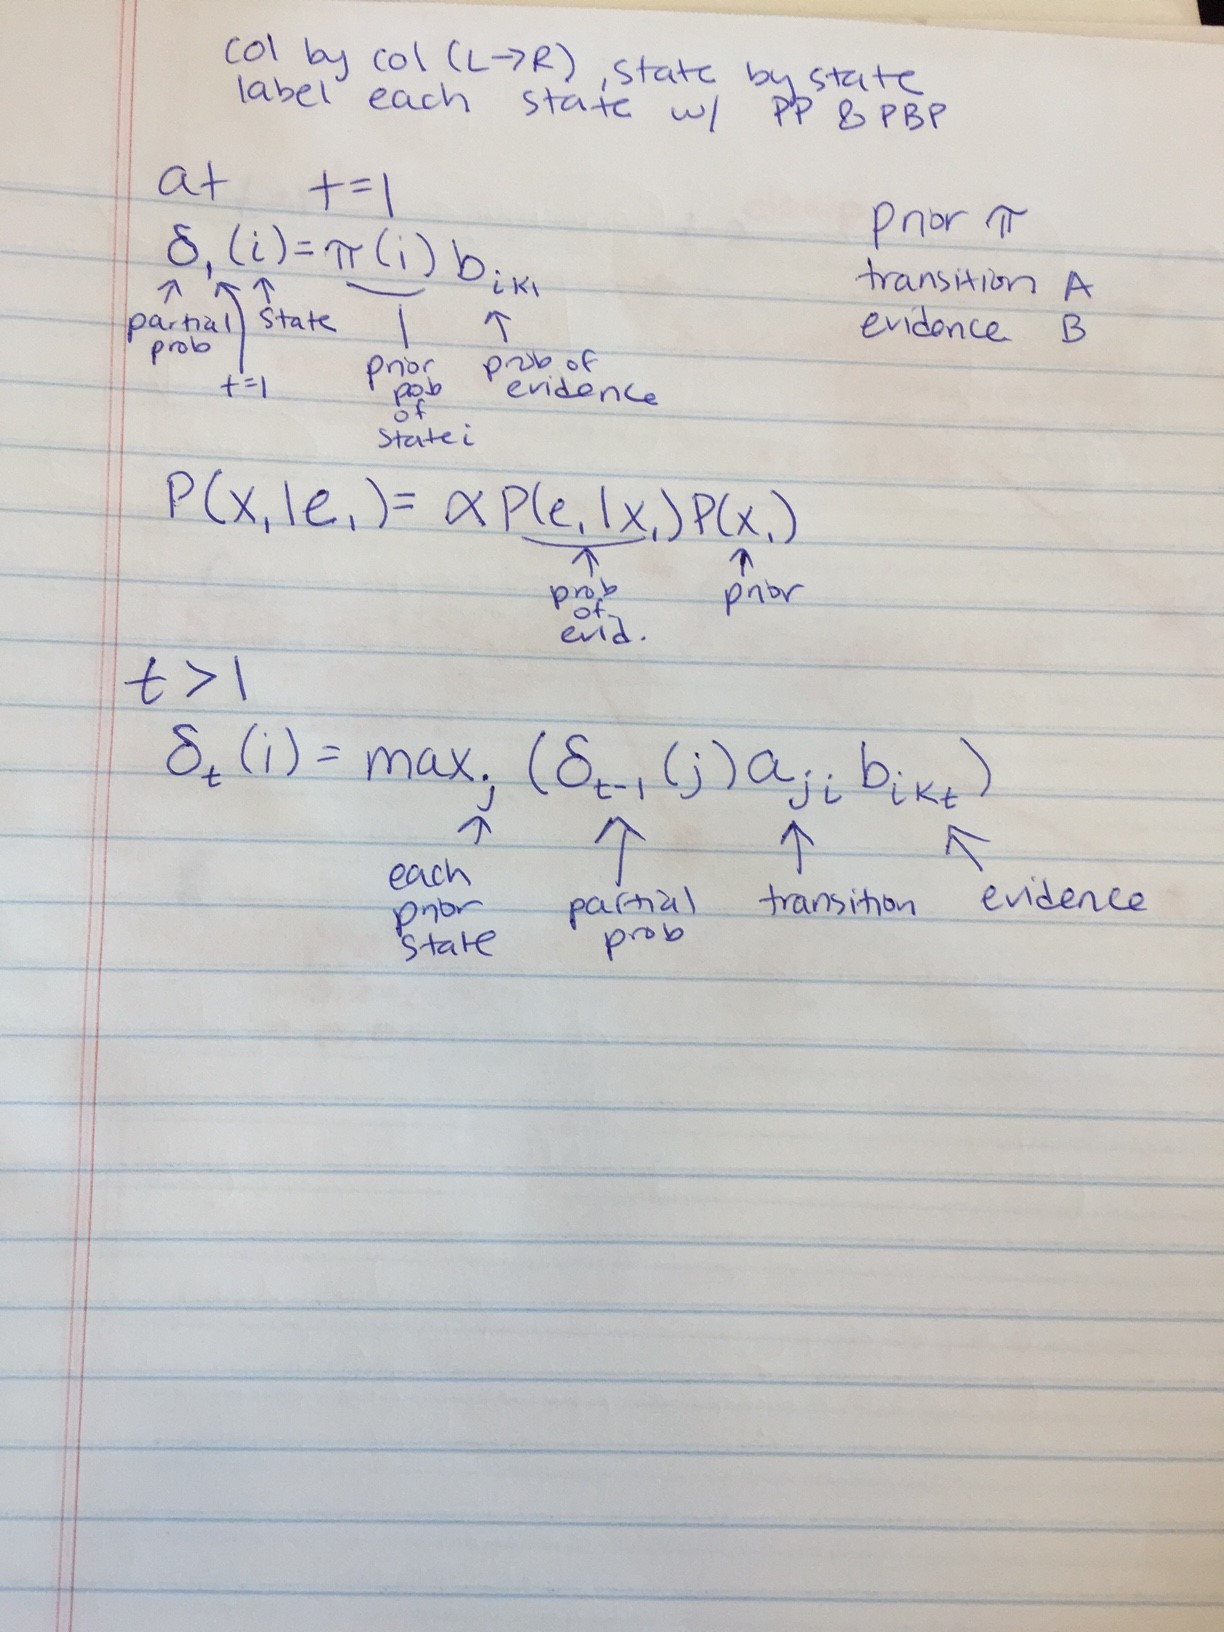 col by col (L→R), state by state
label each state w/ PP & PBP
at t=1
δ₁(i) = π(i) b_ik₁
partial prob
t=1
state
prior pob of state i
prob of evidence
prior π
transition A
evidence B
P(x₁|e₁) = αP(e₁|x₁)P(x₁)
prob of evid.
prior
t>1
δ_t(i) = max_j (δ_t-1(j) a_ji b_ik_t)
each prior state
partial prob
transition
evidence